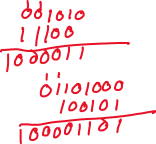 001010
11100
1000011
01101000
100101
100001101